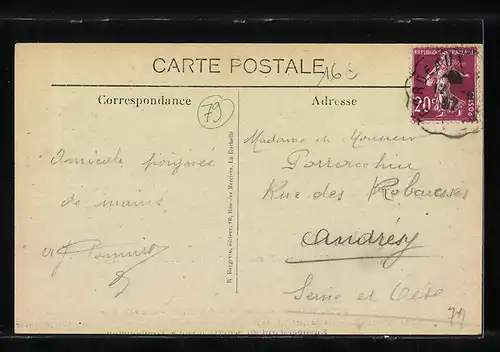 CARTE POSTALE
160
Correspondance
79
Adresse
RÉPUBLIQUE FRANÇAISE
20c
POSTES
Amicale poignée
de mains
Madame et Monsieur
Rue des
Andrésy
Seine et Oise
79
R. Bergevin, éditeur, rue des Merciers, La Rochelle